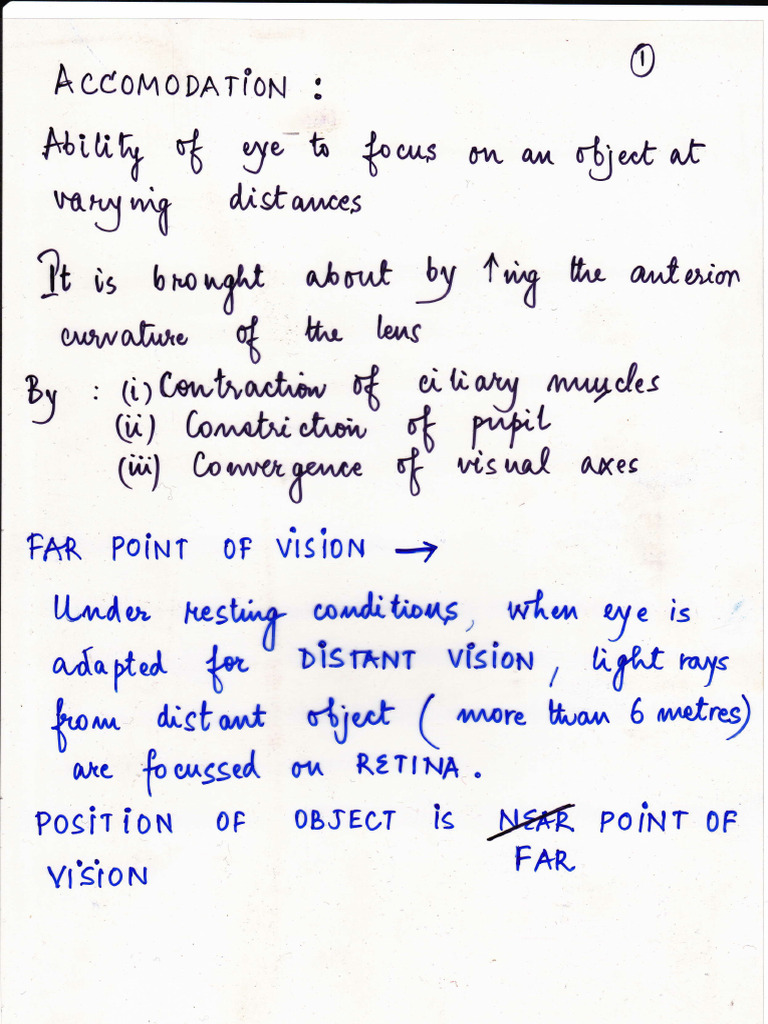 ①
ACCOMODATION :
Ability of eye to focus on an object at
varying distances
It is brought about by ↑ing the anterior
curvature of the lens
By : (i) Contraction of ciliary muscles
(ii) Constriction of pupil
(iii) Convergence of visual axes
FAR POINT OF VISION →
Under resting conditions, when eye is
adapted for DISTANT VISION, light rays
from distant object (more than 6 metres)
are focussed on RETINA.
POSITION OF OBJECT is NEAR POINT OF
FAR
VISION